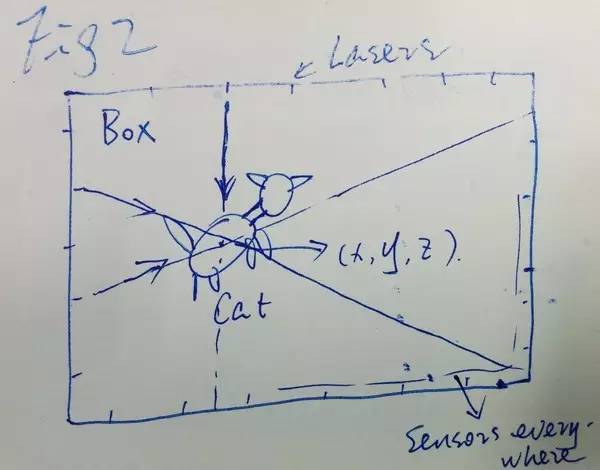 Fig 2
Lasers
Box
(x, y, z).
Cat
Sensors every-
where